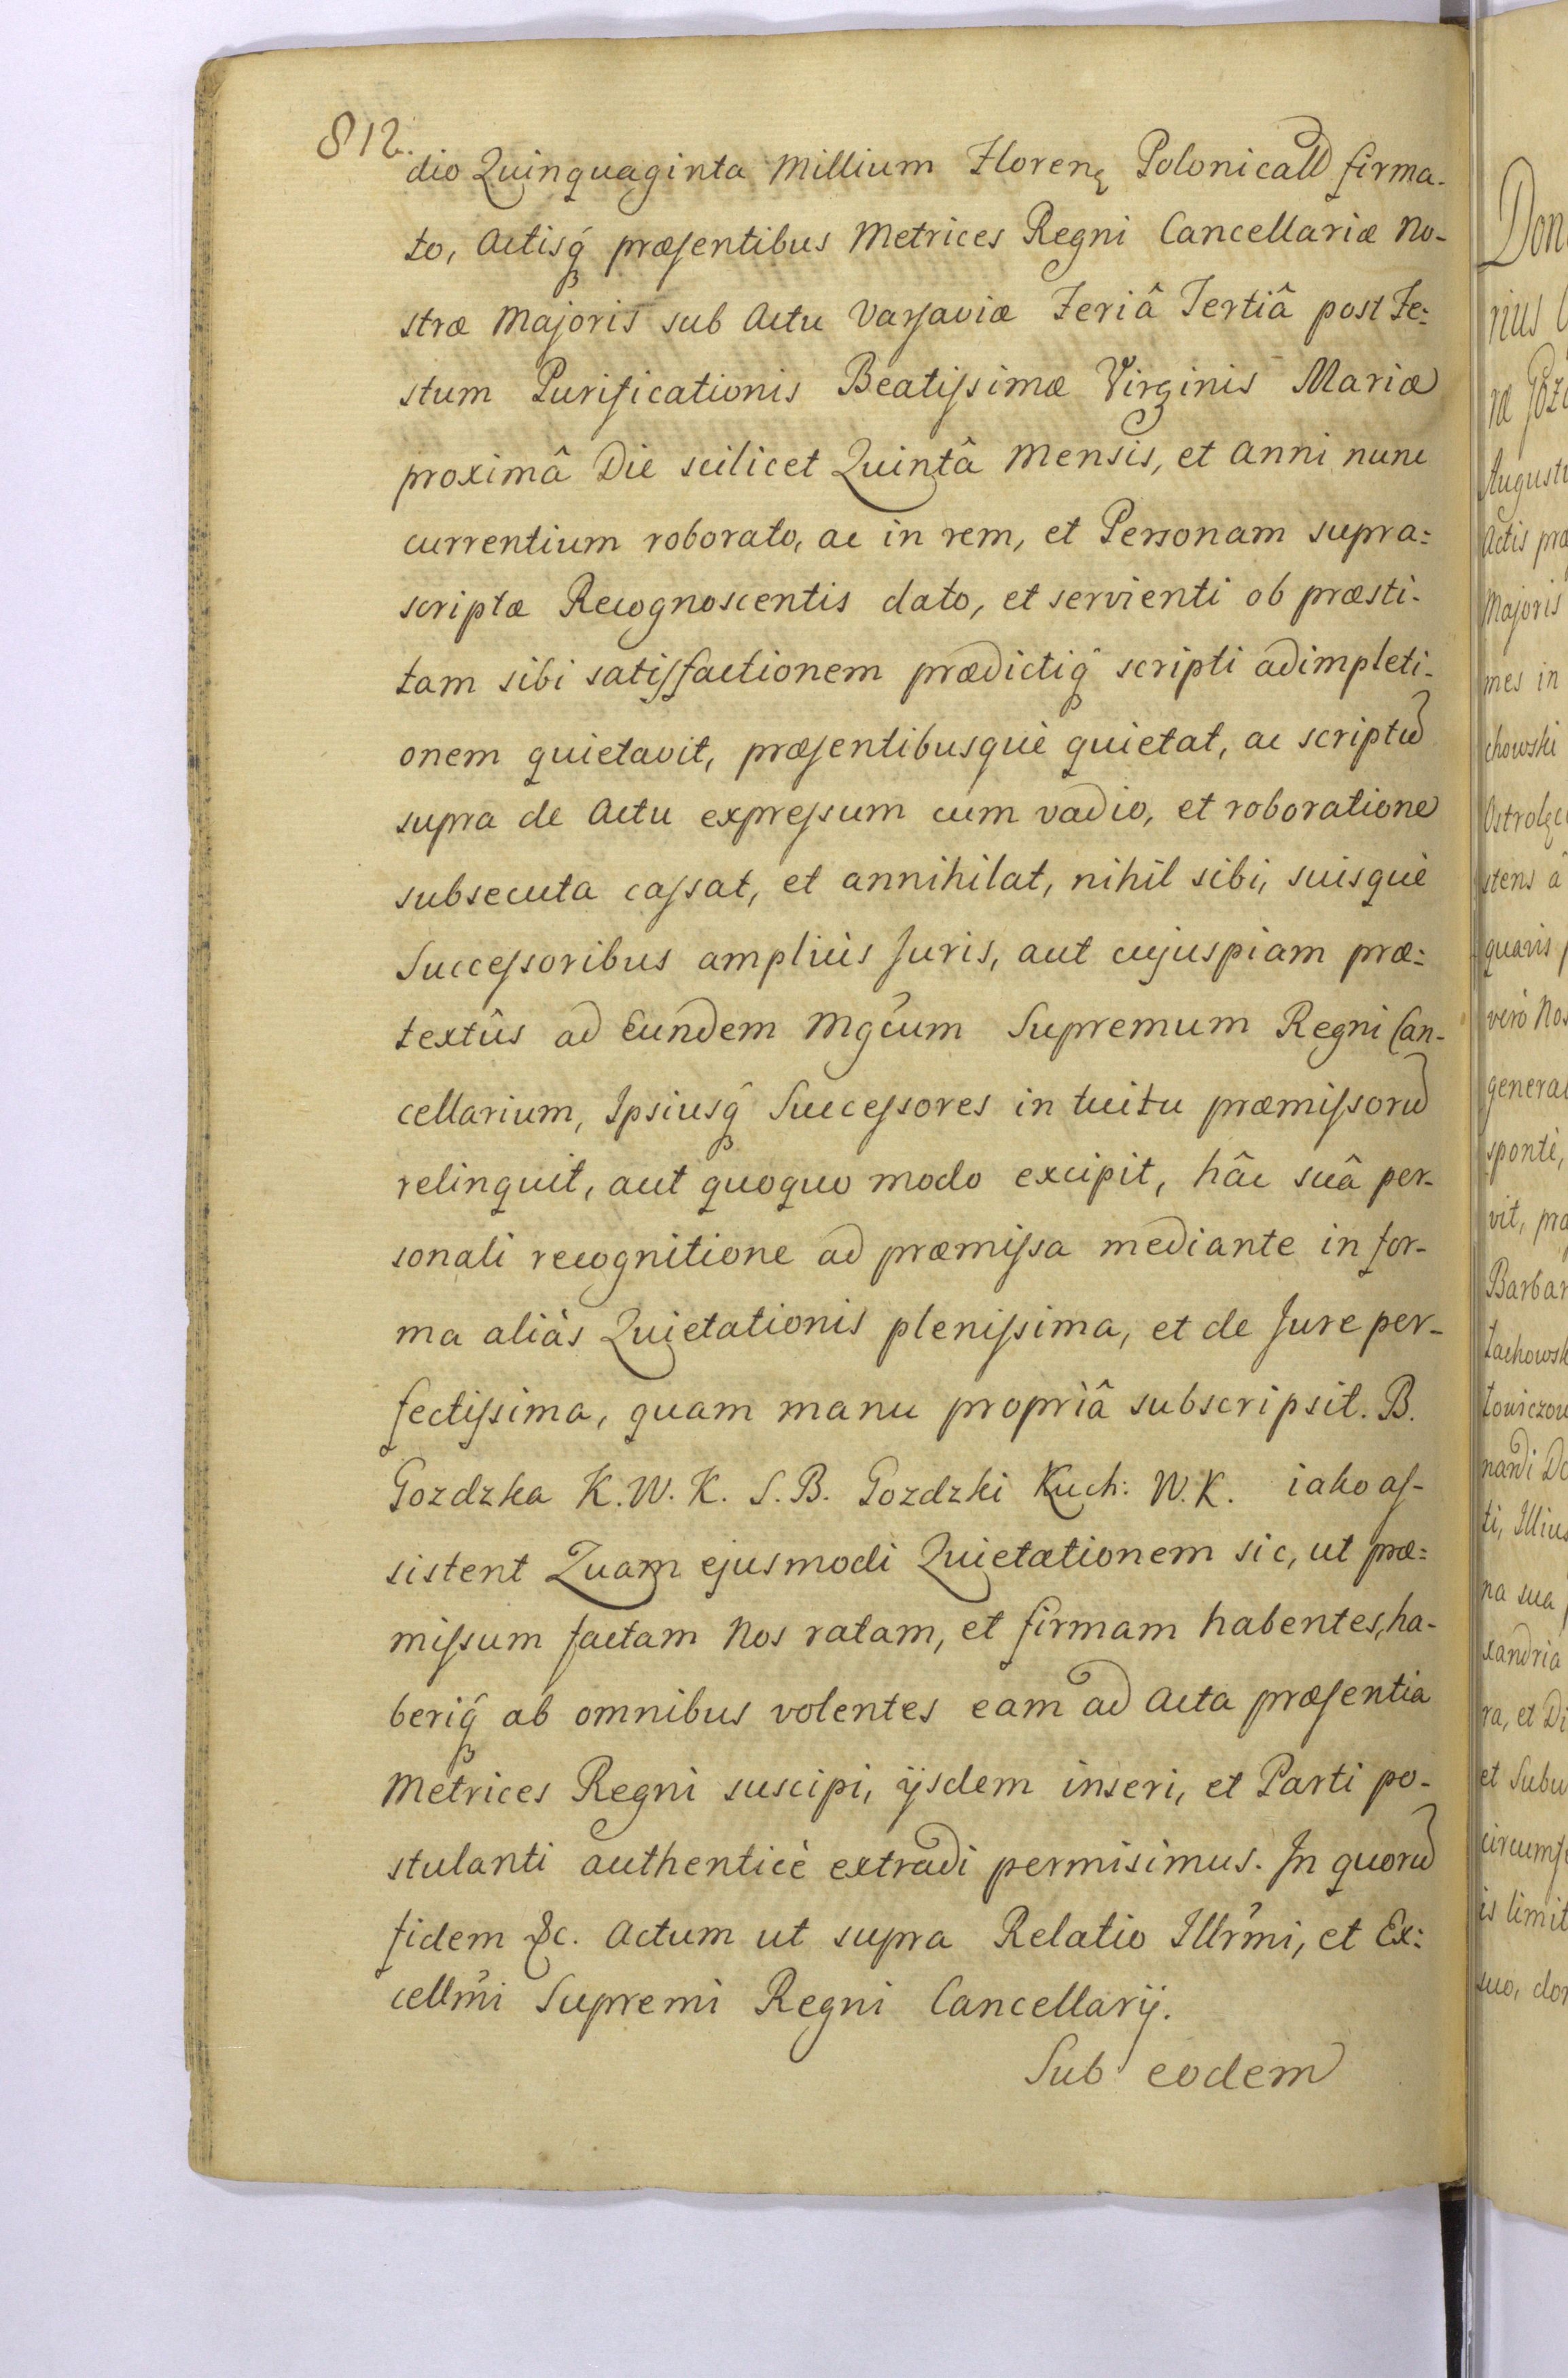 812.
dio Quinquaginta Millium Florenę Polonicalꝫ firma-
to, Actisq́ꝫ præsentibus Metrices Regni Cancellariæ No-
stræ Majoris sub Actu Varsaviæ Feriâ Tertiâ post Fe:
stum Purificationis Beatissimæ Virginis Mariæ
proximâ Die scilicet Quintâ Mensis, et Anni nunc
currentium roborato, ac in rem, et Personam supra:
scriptæ Recognoscentis dato, et servienti ob præsti-
tam sibi satisfactionem prædictiq́ꝫ scripti adimpleti-
onem quietavit, præsentibusquè quietat, ac scriptū
supra de Actu expressum cum vadio, et roboratione
subsecuta cassat, et annihilat, nihil sibi, suisquè
Successoribus ampliùs Juris, aut cujuspiam præ:
textûs ad Eundem Mgcum Supremum Regni Can-
cellarium, Ipsiusq́ꝫ Successores in tuitu præmissorū
relinquit, aut quoquo modo excipit, hâc suâ per-
sonali recognitione ad præmissa mediante in for-
ma aliàs Quietationis plenissima, et de Jure per-
fectissima, quam manu propriâ subscripsit. B.
Gozdzka K. W. K. S. B. Gozdzki Kuch: W. K. iako as-
sistent Quam ejusmodi Quietationem sic, ut præ:
missum factam Nos ratam, et firmam habentes, ha-
beriq́ꝫ ab omnibus volentes eam ad Acta præsentia
Metrices Regni suscipi, ijsdem inseri, et Parti po-
stulanti authenticè extradi permisimus. In quorū
fidem &c. Actum ut supra Relatio Illrmi, et Ex:
cellmi Supremi Regni Cancellarij.
Sub eodem
Don
rius
Augusti
Actis præ
Majoris
mes in
chowski
Ostrolęc
stens à
quavis
verò Nos
general
spontè,
vit, præ
Barbar
tachowsk
towiczow
nandi Do
ti, Illius
na sua
xandria
ra, et Di
et Subu
circumf
is limit
suo, dor